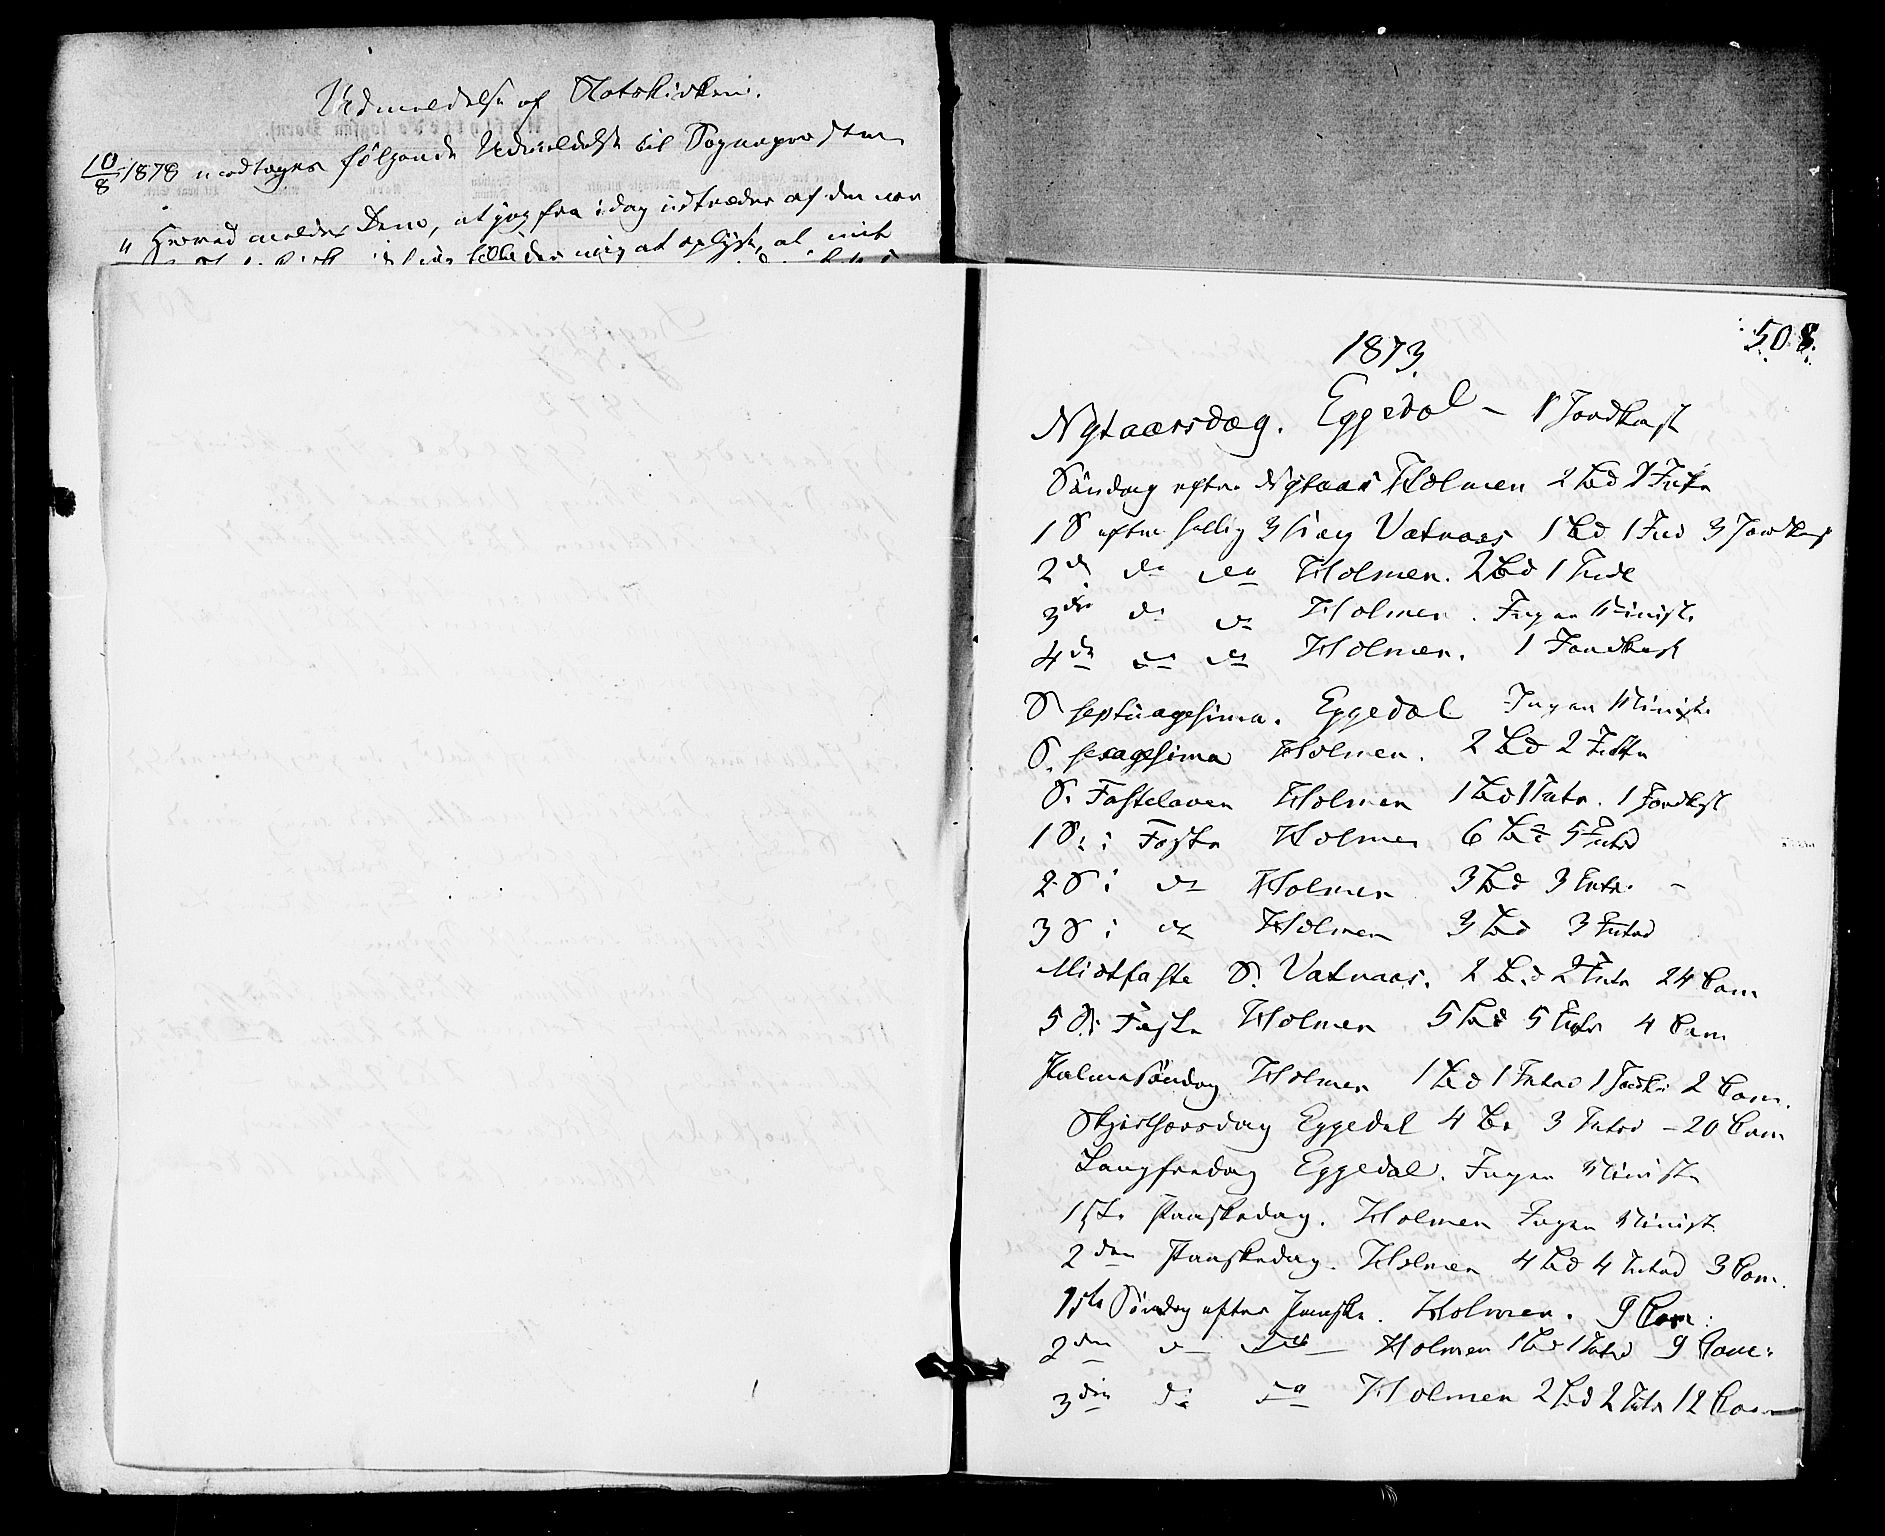 Udmeldelse af Statskirken.
10/8 1878 modtoges følgende Udmeldelse til Sognepresten
" Herved meldes Dem, at jeg fra idag udtræder af den nor
at oplyse, at mit
508.
1873.
Nytaarsdag. Eggedal – 1 Jordkast
Søndag efter Nytaar Holmen 2 Bd 2 Intr
1 S efter hellig 3 Kong Vatnaas 1 Bd 1 Intr 3 Jordkast
2d do do Holmen. 2 Bd 1 Intr
3die do do Holmen. Ingen Minist.
4de do do Holmen. 1 Jordkast
S septuagesima. Eggedal Ingen Minist.
S. sexagesima Holmen. 2 Bd 2 Intr
S. Fastelaven Holmen 1 Bd 1 Intr. 1 Jordkst
1 S. i Faste Holmen 6 Bd 5 Intrd
2 S i do Holmen 3 Bd 3 Intr. –
3 S i do Holmen 3 Bd 3 Intrd
Midtfaste S. Vatnaas. 2 Bd 2 Intr 24 Com
5 S. i Faste Holmen 5 Bd 5 Intr 4 Com
Palmesøndag Holmen 1 Bd 1 Intrd 1 Jordk. 2 Com.
Skjærthorsdag Eggedal 4 Bd 3 Intrd – 20 Com
Langfredag Eggedal. Ingen Minist.
1ste Paaskedag. Holmen Ingen Minist.
2den Paaskedag. Holmen 4 Bd 4 Intrd 3 Com.
1ste Søndag efter Paaske. Holmen. 9 Com:
2den do do Holmen 1 Bd 1 Intrd 9 Com:
3die do do Holmen 2 Bd 2 Intr 12 Com